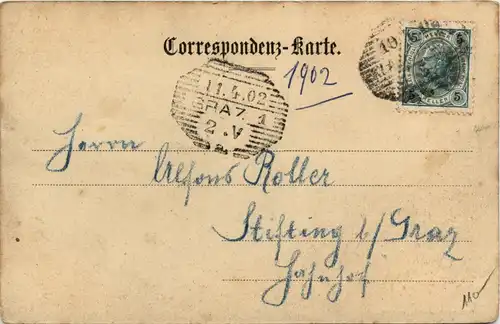 Correspondenz-Karte.
1902
11.4.02
GRAZ 1
2.V
a
5 5
5 HELLER 5
Herrn
Alfons Roller
Stifting b/Graz
Hahnhof
110